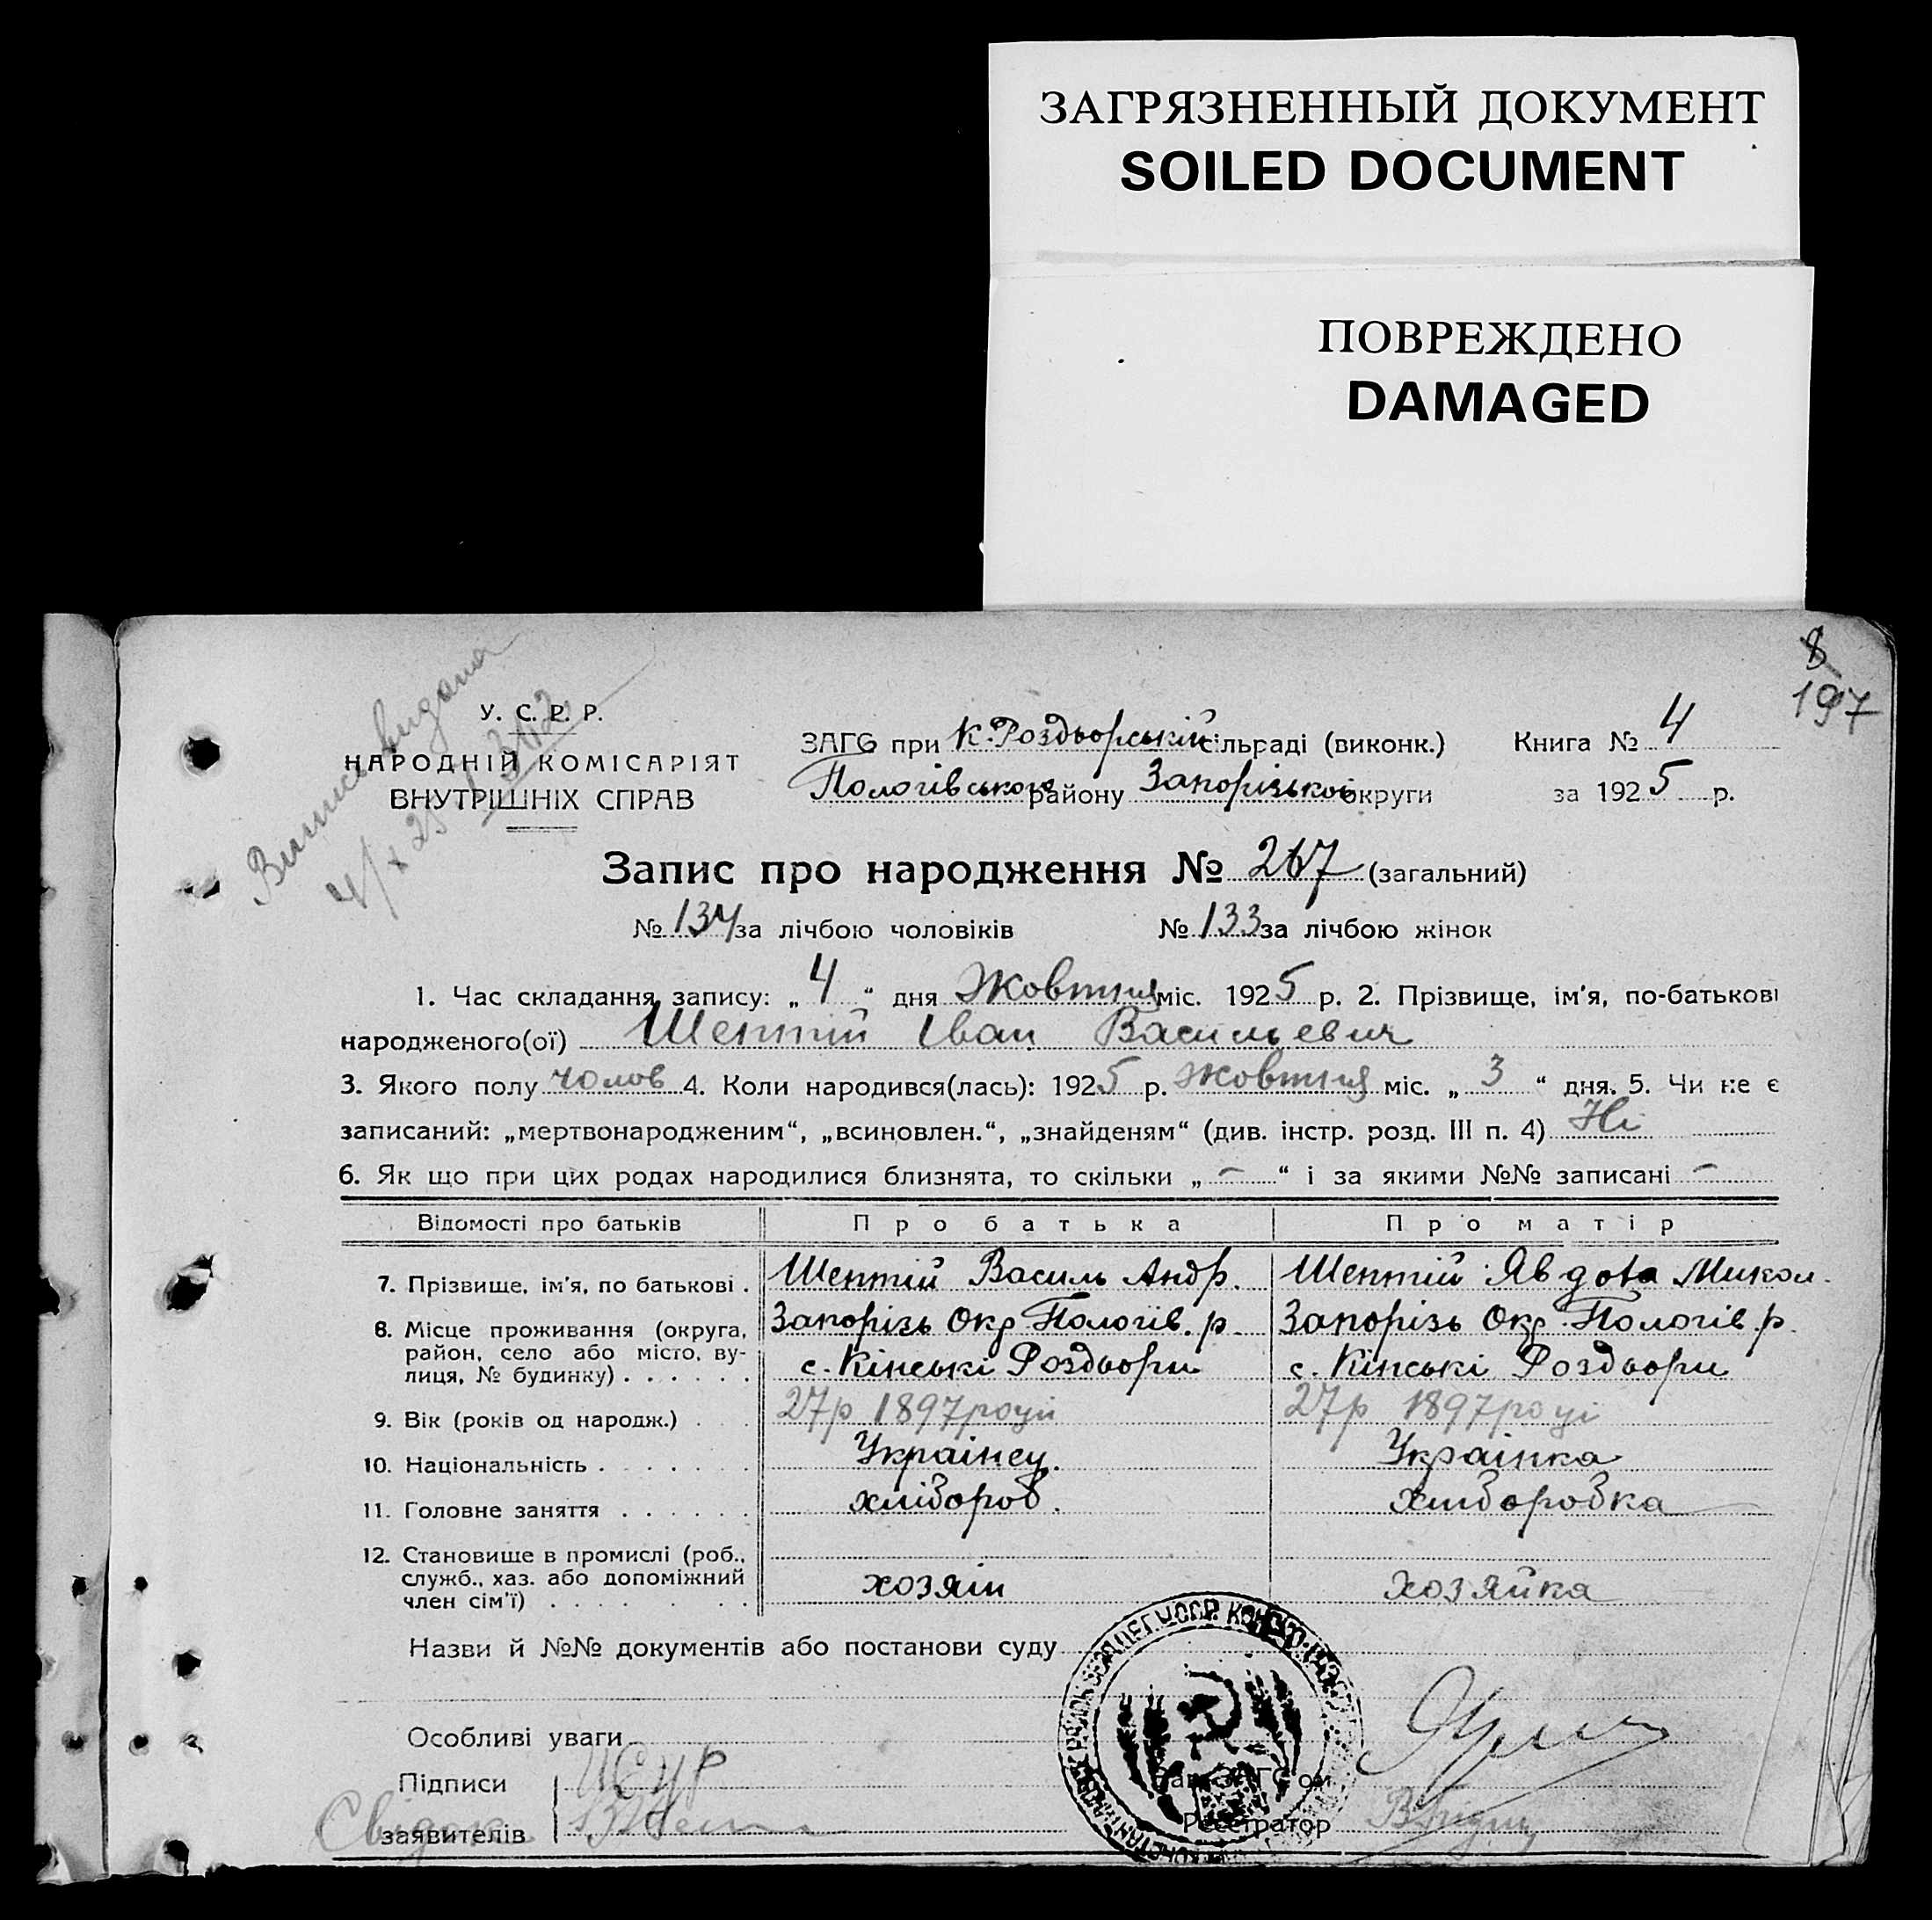 ЗАГРЯЗНЕННЫЙ ДОКУМЕНТ
SOILED DOCUMENT
ПОВРЕЖДЕНО
DAMAGED
8
197
Випись видана
4/X 25 342
У. С. Р. Р.
НАРОДНІЙ КОМІСАРІЯТ
ВНУТРІШНІХ СПРАВ
ЗАГС при К. Роздорській сільраді (виконк.) Книга № 4
Пологівського району Запорізької округи за 1925 р.
Запис про народження № 267 (загальний)
№ 134 за лічбою чоловіків № 133 за лічбою жінок
1. Час складання запису: „4“ дня Жовтня міс. 1925 р. 2. Прізвище, ім'я, по-батькові
народженого(ої) Шептій Іван Васильевич
3. Якого полу чолов 4. Коли народився(лась): 1925 р. Жовтня міс. „3“ дня. 5. Чи не є
записаний: „мертвонародженим“, „всиновлен.“, „знайденям“ (див. інстр. розд. III п. 4) Ні
6. Як що при цих родах народилися близнята, то скільки „–“ і за якими №№ записані –
Відомості про батьків Про батька Про матір
7. Прізвище, ім'я, по батькові . Шептій Василь Андр. Шептій Явдота Микол.
8. Місце проживання (округа, Запорізь Окр Пологів. р. Запорізь Окр. Пологів. р.
район, село або місто, ву-
лиця, № будинку) . . . . . . с. Кінські Роздори с. Кінські Роздори
9. Вік (років од народж.) . . . 27р 1897 році 27р 1897 році
10. Національність . . . . . . . Українец. Українка
11. Головне заняття . . . . . . хлібороб. хліборобка
12. Становище в промислі (роб.,
служб., хаз. або допоміжний хозяін хозяйка
член сім'ї) . . . . . . . .
Назви й №№ документів або постанови суду
Особливі уваги
Підписи
Свідок заявителів
Зав. ЗАГС'ом
Реєстратор